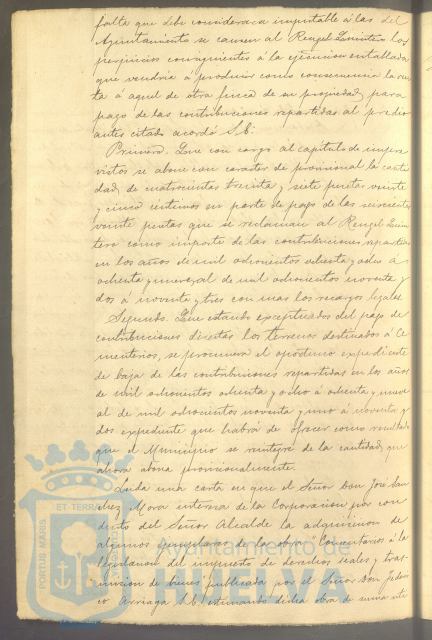 falta que debe considerarse imputable á las del
Ayuntamiento se causen al Rengel Quintero los
perjuicios consiguientes á la ejecucion entablada
que vendria á producir como consecuencia la ven
ta á aquel de otra finca de su propiedad, para
pago de las contribuciones repartidas al predio
antes citado acordó S.E.
Primero. Que con cargo al capitulo de impre
vistos se abone con caracter de provisional la canti
dad de cuatrocientas treinta y siete pesetas veinte
y cinco centimos en parte de pago de las seiscientas
veinte pesetas que se reclaman al Rengel Quin
tero como importe de las contribuciones repartidas
en los años de mil ochocientos ochenta y ocho á
ochenta y nueve, al de mil ochocientos noventa y
dos á noventa y tres con mas los recargos legales.
Segundo. Que estando exceptuados del pago de
contribuciones directas los terrenos destinados á Ce
menterios, se promueva el oportuno expediente
de baja de las contribuciones repartidas en los años
de mil ochocientos ochenta y ocho á ochenta y nueve
al de mil ochocientos noventa y uno á noventa y
dos expediente que habrá de ofrecer como resultado
que el Municipio se reintegre de la cantidad que
ahora abona provisionalmente.
Leida una carta en que el Señor Don José San
chez Mora interesa de la Corporacion por con
ducto del Señor Alcalde la adquisicion de
algunos ejemplares de la obra "Comentarios á la
legislacion del impuesto de derechos reales y tras-
mision de bienes" publicada por el Señor Don
co Arriaga S.E. estimando dicha obra de suma
PORTUS MARIS
ET TERRAE
Ayuntamiento de
HUELVA